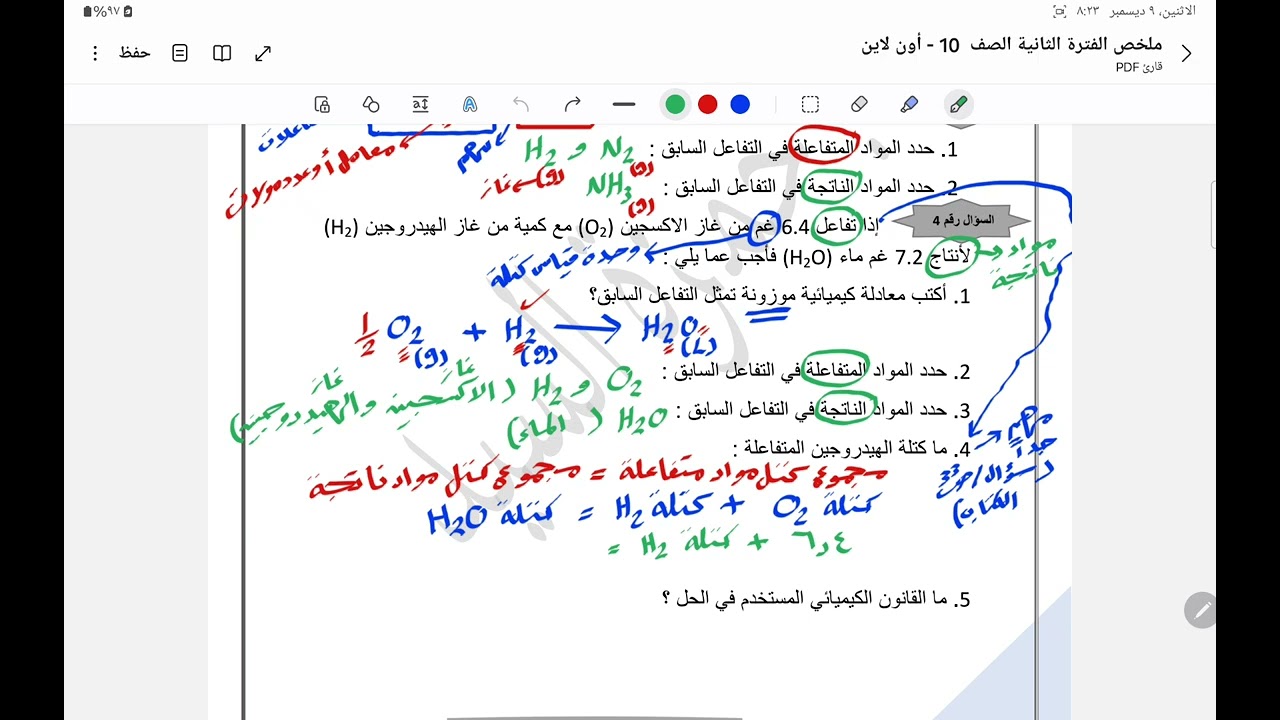 الاثنين، ٩ ديسمبر ٨:٢٣
٩٧%
ملخص الفترة الثانية الصف 10 - أون لاين
قارئ PDF
حفظ
1. حدد المواد المتفاعلة في التفاعل السابق : N₂ و H₂
معامل أو عدد مولات
مهم
(g)
2. حدد المواد الناتجة في التفاعل السابق : NH₃
(g) ← غاز
(g)
السؤال رقم 4
إذا تفاعل 6.4 غم من غاز الاكسجين (O₂) مع كمية من غاز الهيدروجين (H₂)
لأنتاج 7.2 غم ماء (H₂O) فأجب عما يلي :
مواد ناتجة
وحدة قياس كتلة
1. أكتب معادلة كيميائية موزونة تمثل التفاعل السابق؟
½ O₂ (g) + H₂ (g) → H₂O (L)
2. حدد المواد المتفاعلة في التفاعل السابق : O₂ و H₂ (غاز الأكسجين وغاز الهيدروجين)
3. حدد المواد الناتجة في التفاعل السابق : H₂O (الماء)
4. ما كتلة الهيدروجين المتفاعلة :
مهم جداً
مجموع كتل مواد متفاعلة = مجموع كتل مواد ناتجة
كتلة O₂ + كتلة H₂ = كتلة H₂O
٦,٤ + كتلة H₂ =
5. ما القانون الكيميائي المستخدم في الحل ؟